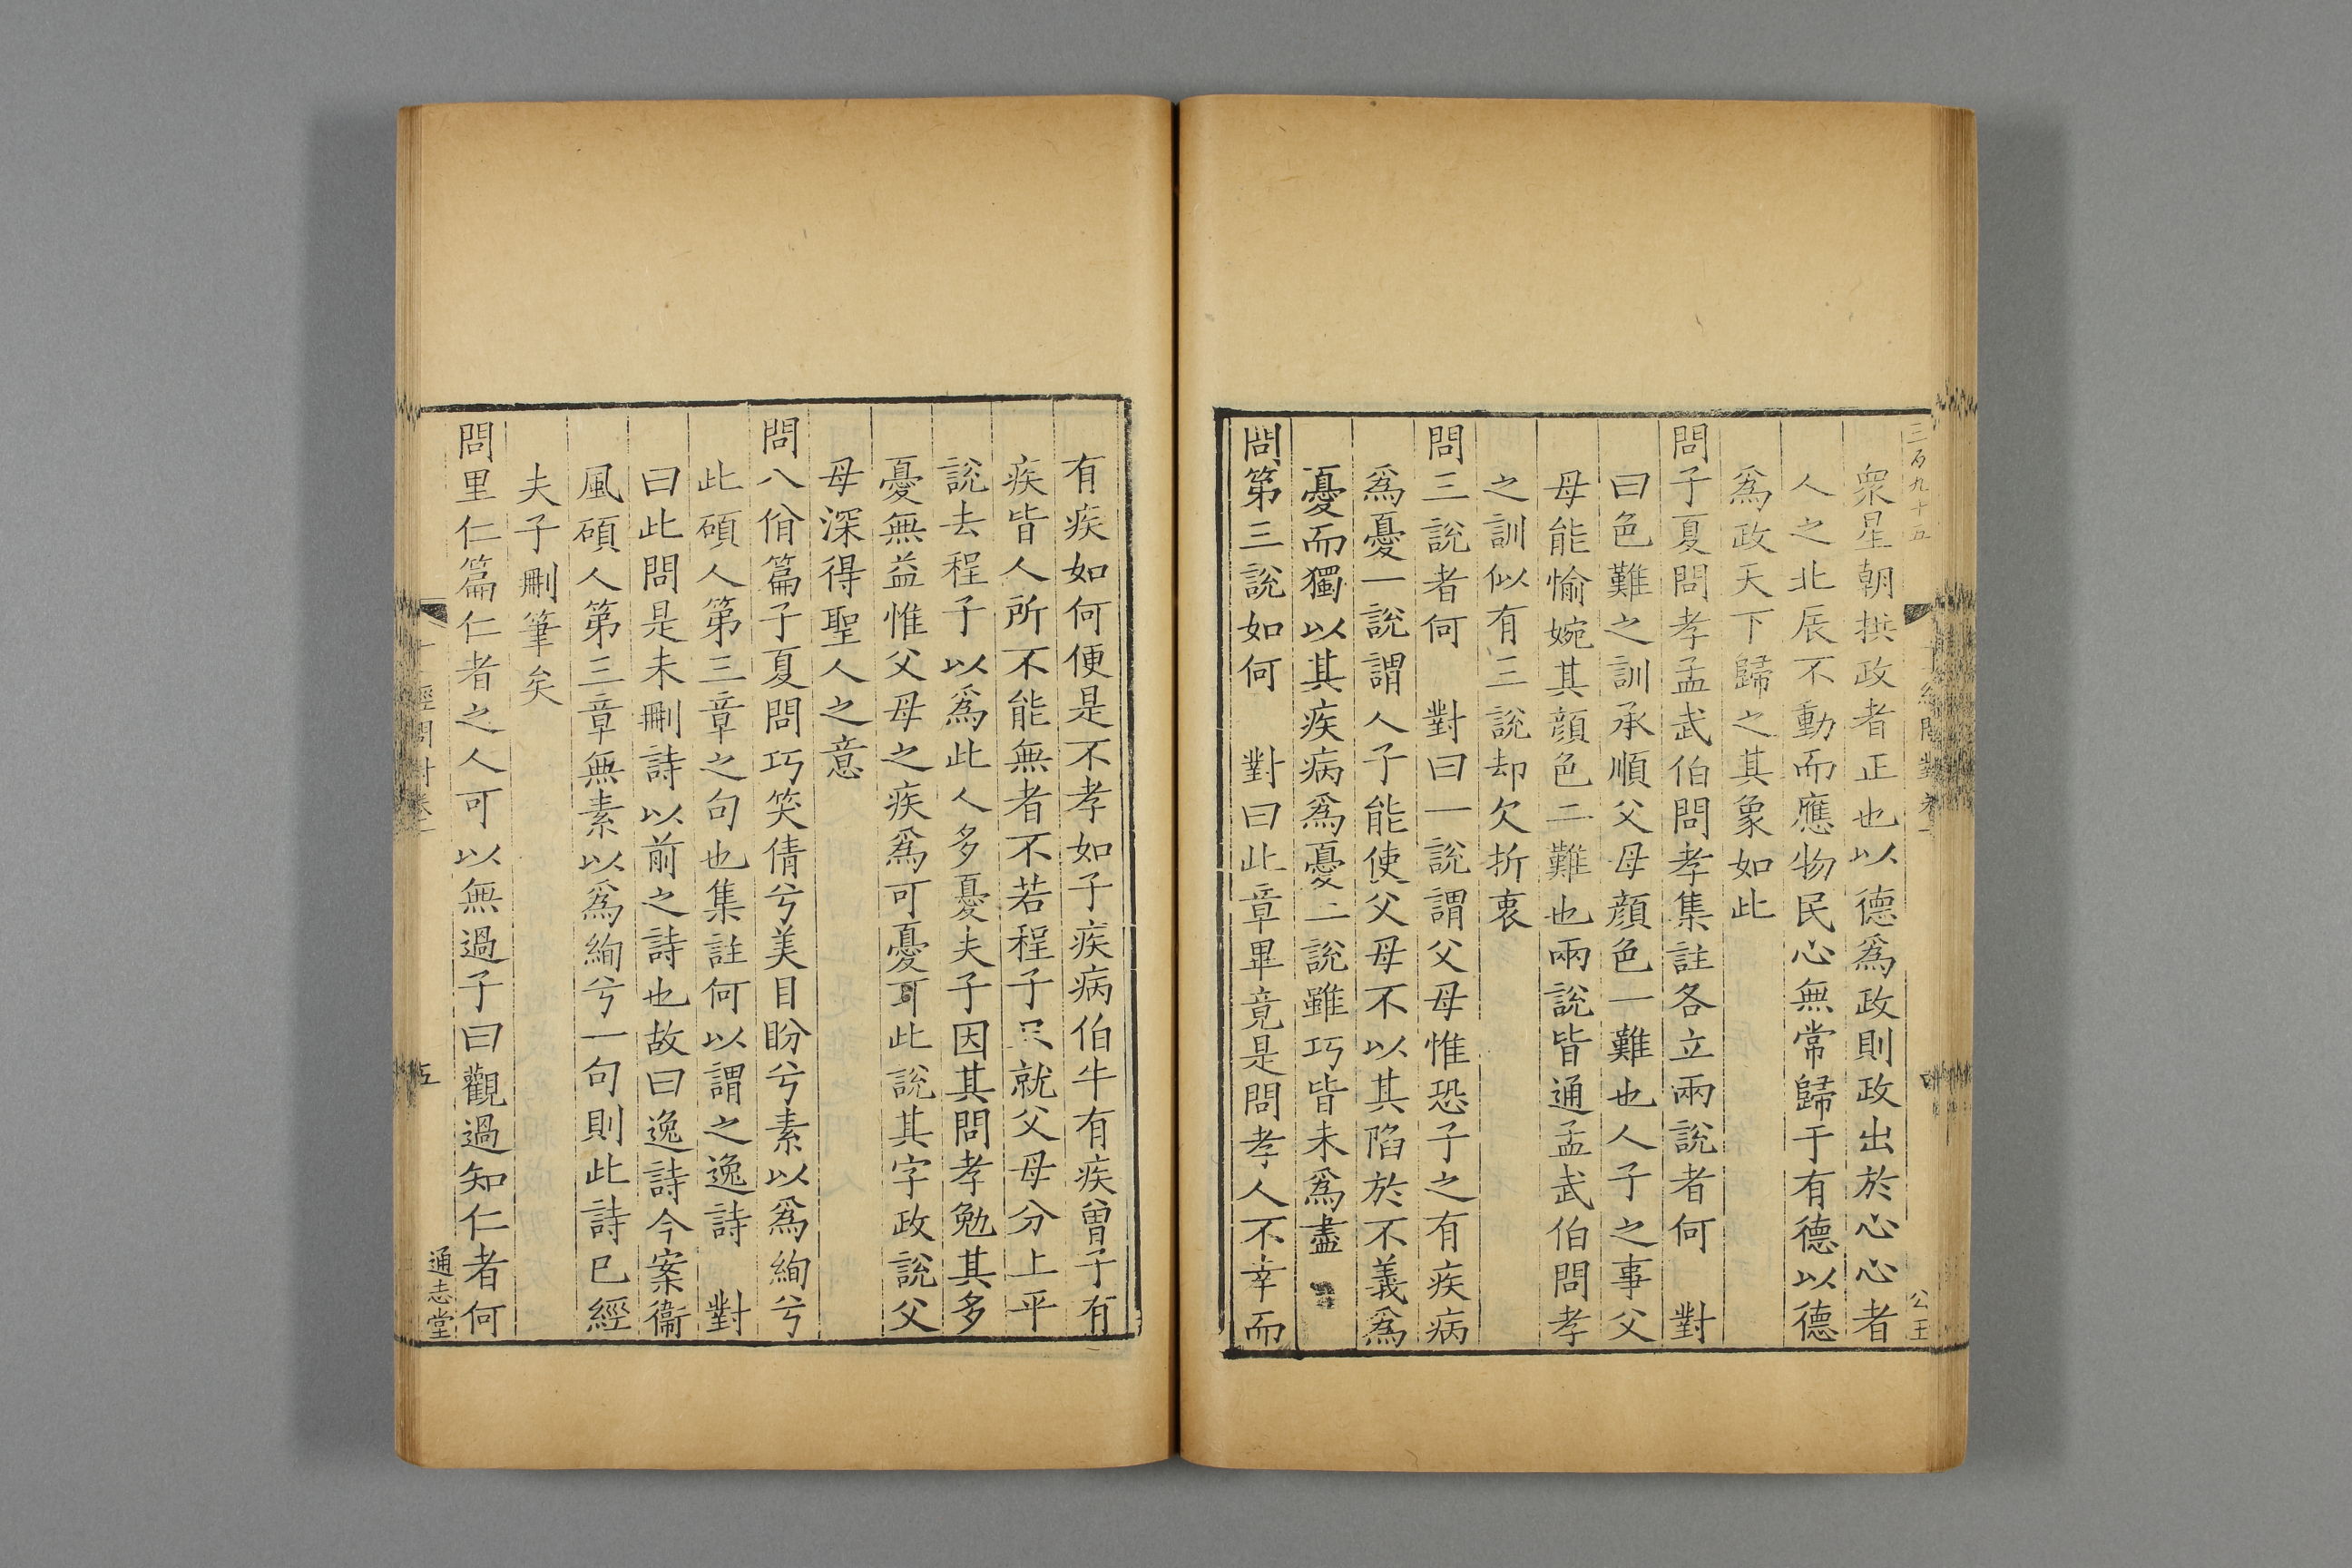 三百九十五
衆星朝拱政者正也以德爲政則政出於心心者
人之北辰不動而應物民心無常歸于有德以德
爲政天下歸之其象如此
問子夏問孝孟武伯問孝集註各立兩說者何　對
曰色難之訓承順父母顔色一難也人子之事父
母能愉婉其顔色二難也兩說皆通孟武伯問孝
之訓似有三說却欠折衷
問三說者何　對曰一說謂父母惟恐子之有疾病
爲憂一說謂人子能使父母不以其陷於不義爲
憂而獨以其疾病爲憂二說雖巧皆未爲盡
問第三說如何　對曰此章畢竟是問孝人不幸而
有疾如何便是不孝如子疾病伯牛有疾曾子有
疾皆人所不能無者不若程子只就父母分上平
說去程子以爲此人多憂夫子因其問孝勉其多
憂無益惟父母之疾爲可憂耳此說其字政說父
母深得聖人之意
問八佾篇子夏問巧笑倩兮美目盼兮素以爲絢兮
此碩人第三章之句也集註何以謂之逸詩　對
曰此問是未刪詩以前之詩也故曰逸詩今案衞
風碩人第三章無素以爲絢兮一句則此詩已經
夫子刪筆矣
問里仁篇仁者之人可以無過子曰觀過知仁者何
經問對卷
五
通志堂